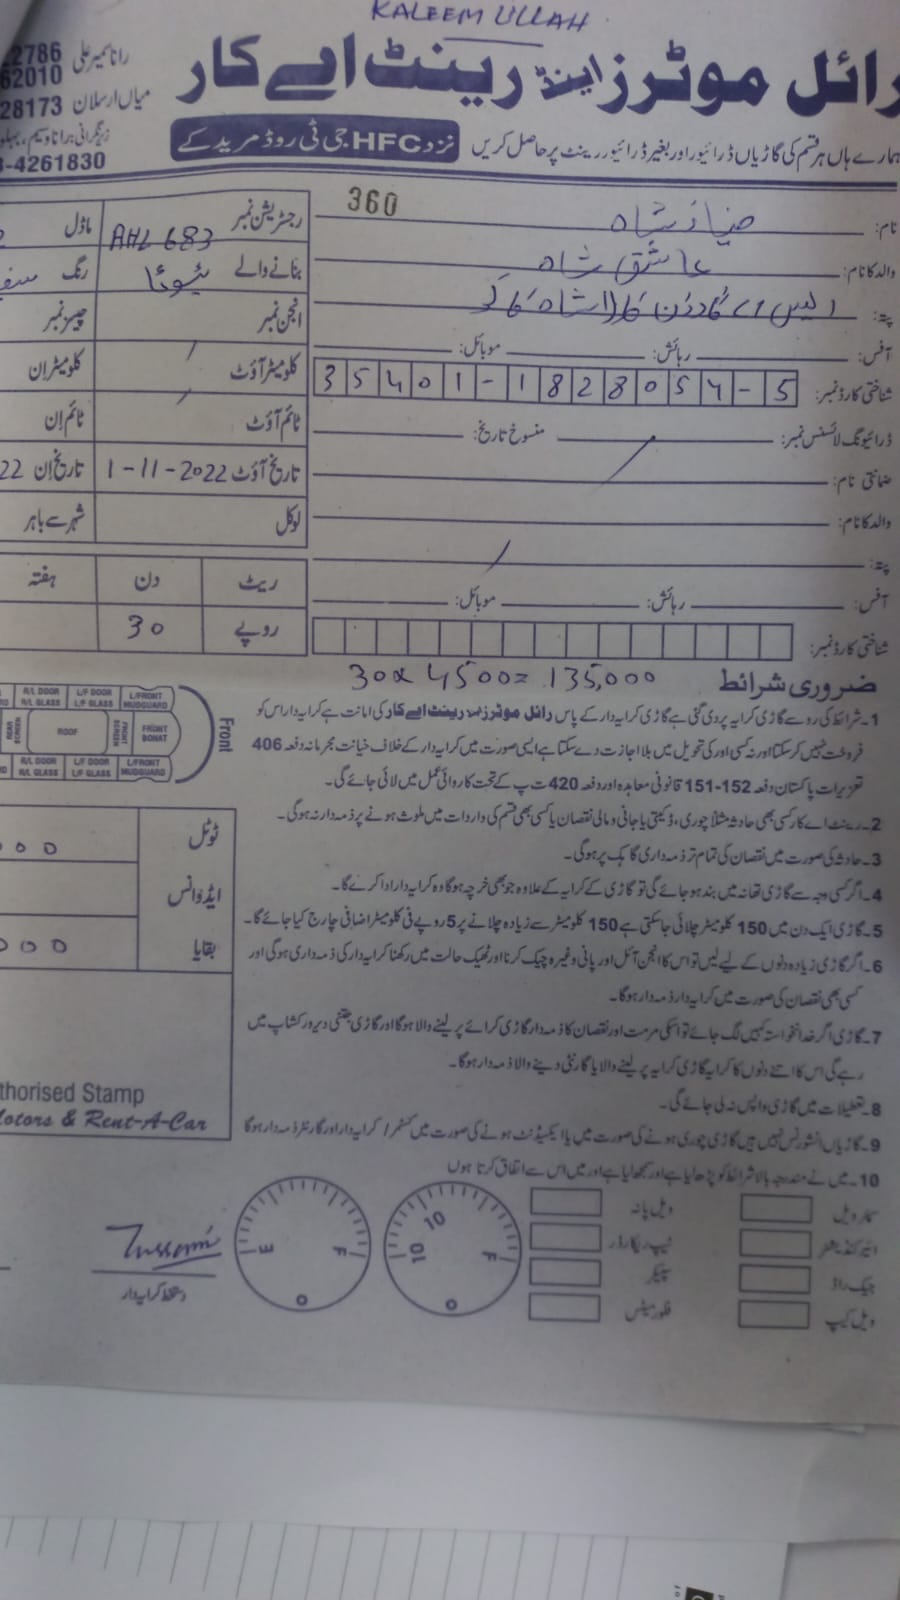 KALEEM ULLAH
رائل موٹرز اینڈ رینٹ اے کار
2786 رانا سمیر علی
62010
28173 میاں ارسلان
4261830
ہمارے ہاں ہر قسم کی گاڑیاں ڈرائیور اور بغیر ڈرائیور رینٹ پر حاصل کریں
نزد HFC جی ٹی روڈ مریدکے
360
نام: ضیاء شاہ
والد کا نام: عاشق شاہ
پتہ:
آفس: رہائش: موبائل:
شناختی کارڈ نمبر: 35401-1828054-5
ڈرائیونگ لائسنس نمبر: منسوخ تاریخ:
ضمانتی نام:
والد کا نام:
پتہ:
آفس: رہائش: موبائل:
شناختی کارڈ نمبر:
رجسٹریشن نمبر AHL 683 ماڈل
بنانے والے ٹیوٹا رنگ
انجن نمبر چیسز نمبر
کلومیٹر آؤٹ کلومیٹر اِن
ٹائم آؤٹ ٹائم اِن
تاریخ آؤٹ 1-11-2022 تاریخ اِن 22
لوکل شہر سے باہر
ریٹ دن ہفتہ
روپے 30
30 x 4500 = 135,000
ضروری شرائط
1۔ شرائط کی رو سے گاڑی کرایہ پر دی گئی ہے گاڑی کرایہ دار کے پاس رائل موٹرز اینڈ رینٹ اے کار کی امانت ہے کرایہ دار اس کو
فروخت نہیں کر سکتا اور نہ کسی اور کی تحویل میں بلا اجازت دے سکتا ہے ایسی صورت میں کرایہ دار کے خلاف خیانت مجرمانہ دفعہ 406
تعزیرات پاکستان دفعہ 152-151 قانونی معاہدہ اور دفعہ 420 ت پ کے تحت کاروائی عمل میں لائی جائے گی۔
2۔ رینٹ اے کار کسی بھی حادثہ مثلاً چوری، ڈکیتی یا جانی و مالی نقصان یا کسی بھی قسم کی واردات میں ملوث ہونے پر ذمہ دار نہ ہوگی۔
3۔ حادثہ کی صورت میں نقصان کی تمام تر ذمہ داری گاہک پر ہوگی۔
4۔ اگر کسی وجہ سے گاڑی تھانہ میں بند ہو جائے گی تو گاڑی کے کرایہ کے علاوہ جو بھی خرچہ ہوگا وہ کرایہ دار ادا کرے گا۔
5۔ گاڑی ایک دن میں 150 کلومیٹر چلائی جاسکتی ہے 150 کلومیٹر سے زیادہ چلانے پر 5 روپے فی کلومیٹر اضافی چارج کیا جائے گا۔
6۔ اگر گاڑی زیادہ دنوں کے لیے لیں تو اس کا انجن آئل اور پانی وغیرہ چیک کرنا اور ٹھیک حالت میں رکھنا کرایہ دار کی ذمہ داری ہوگی اور
کسی بھی نقصان کی صورت میں کرایہ دار ذمہ دار ہوگا۔
7۔ گاڑی اگر خدانخواستہ کہیں لگ جائے تو اسکی مرمت اور نقصان کا ذمہ دار گاڑی کرائے پر لینے والا ہوگا اور گاڑی جتنی دیر ورکشاپ میں
رہے گی اس کا اتنے دنوں کا کرایہ گاڑی کرایہ پر لینے والا یا گارنٹی دینے والا ذمہ دار ہوگا۔
8۔ تعطیلات میں گاڑی واپس نہ لی جائے گی۔
9۔ گاڑیاں انشورنس نہیں ہیں گاڑی چوری ہونے کی صورت میں یا ایکسیڈنٹ ہونے کی صورت میں کسٹمر/ کرایہ دار اور گارنٹر ذمہ دار ہوگا
10۔ میں نے مندرجہ بالا شرائط کو پڑھ لیا ہے اور سمجھ لیا ہے اور میں اس سے اتفاق کرتا ہوں
R/L DOOR L/F DOOR L/FRONT
R/L GLASS L/F GLASS MUDGUARD
ROOF FRONT SCREEN FRONT BONAT
R/L DOOR L/F DOOR L/FRONT
R/L GLASS L/F GLASS MUDGUARD
Front
ٹوٹل 000
ایڈوانس
بقایا 000
thorised Stamp
Motors & Rent-A-Car
وہیل پانہ
ٹیپ ریکارڈر ائیرکنڈیشنر
سپیکر جیک راڈ
فلور میٹس وہیل کپ
E F
10 10 F
دستخط کرایہ دار